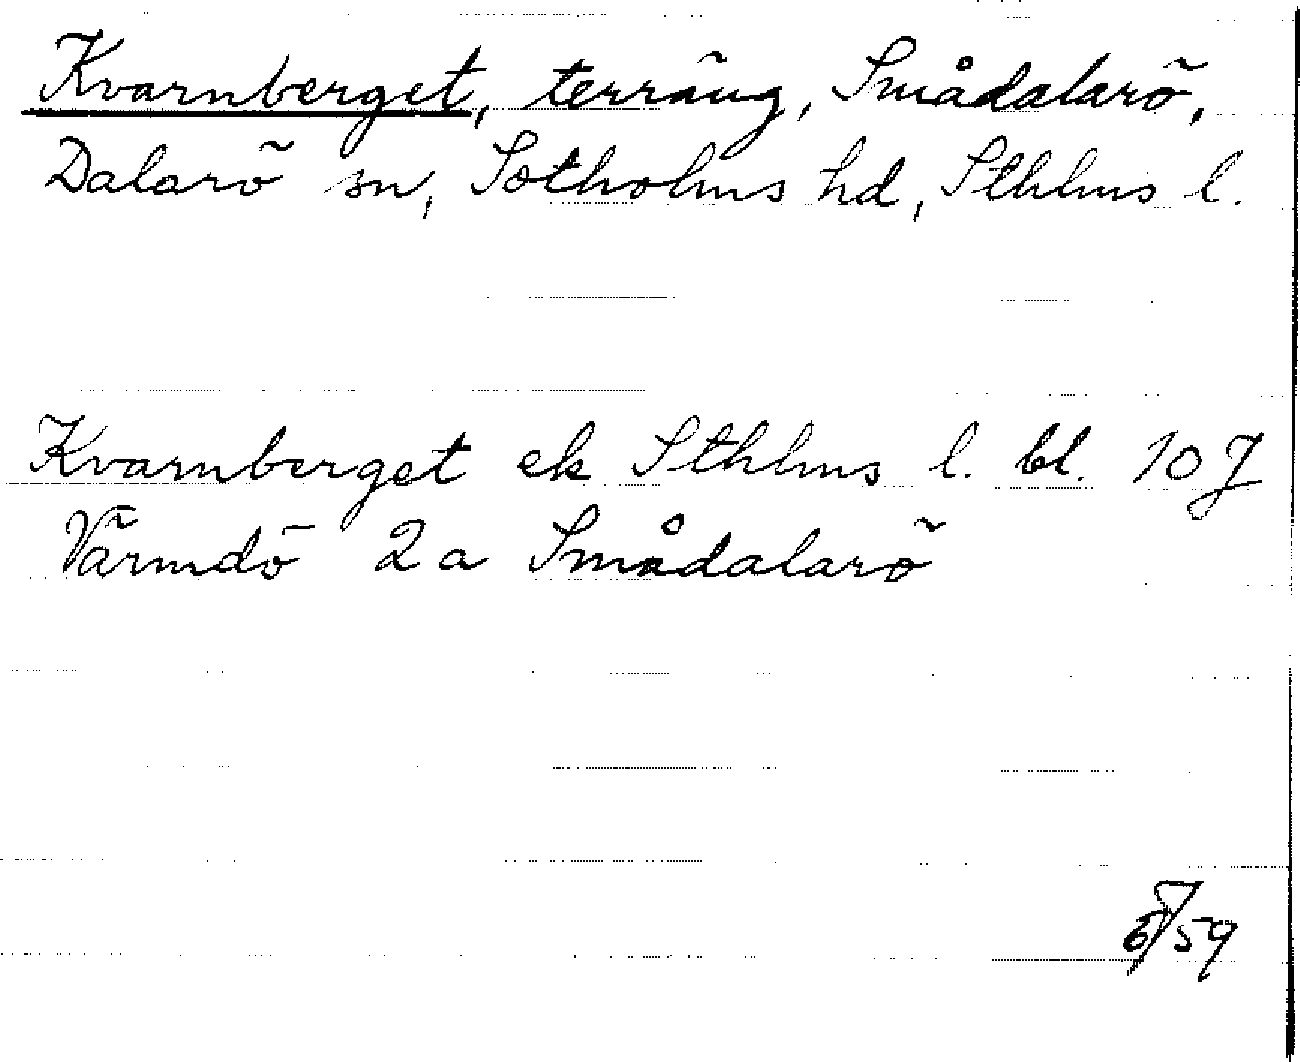 Kvarnberget, terräng, Smådalarö,
Dalarö sn, Sotholms hd, Sthlms l.
Kvarnberget ek Sthlms l. bl. 10 J
Värmdö 2a Smådalarö